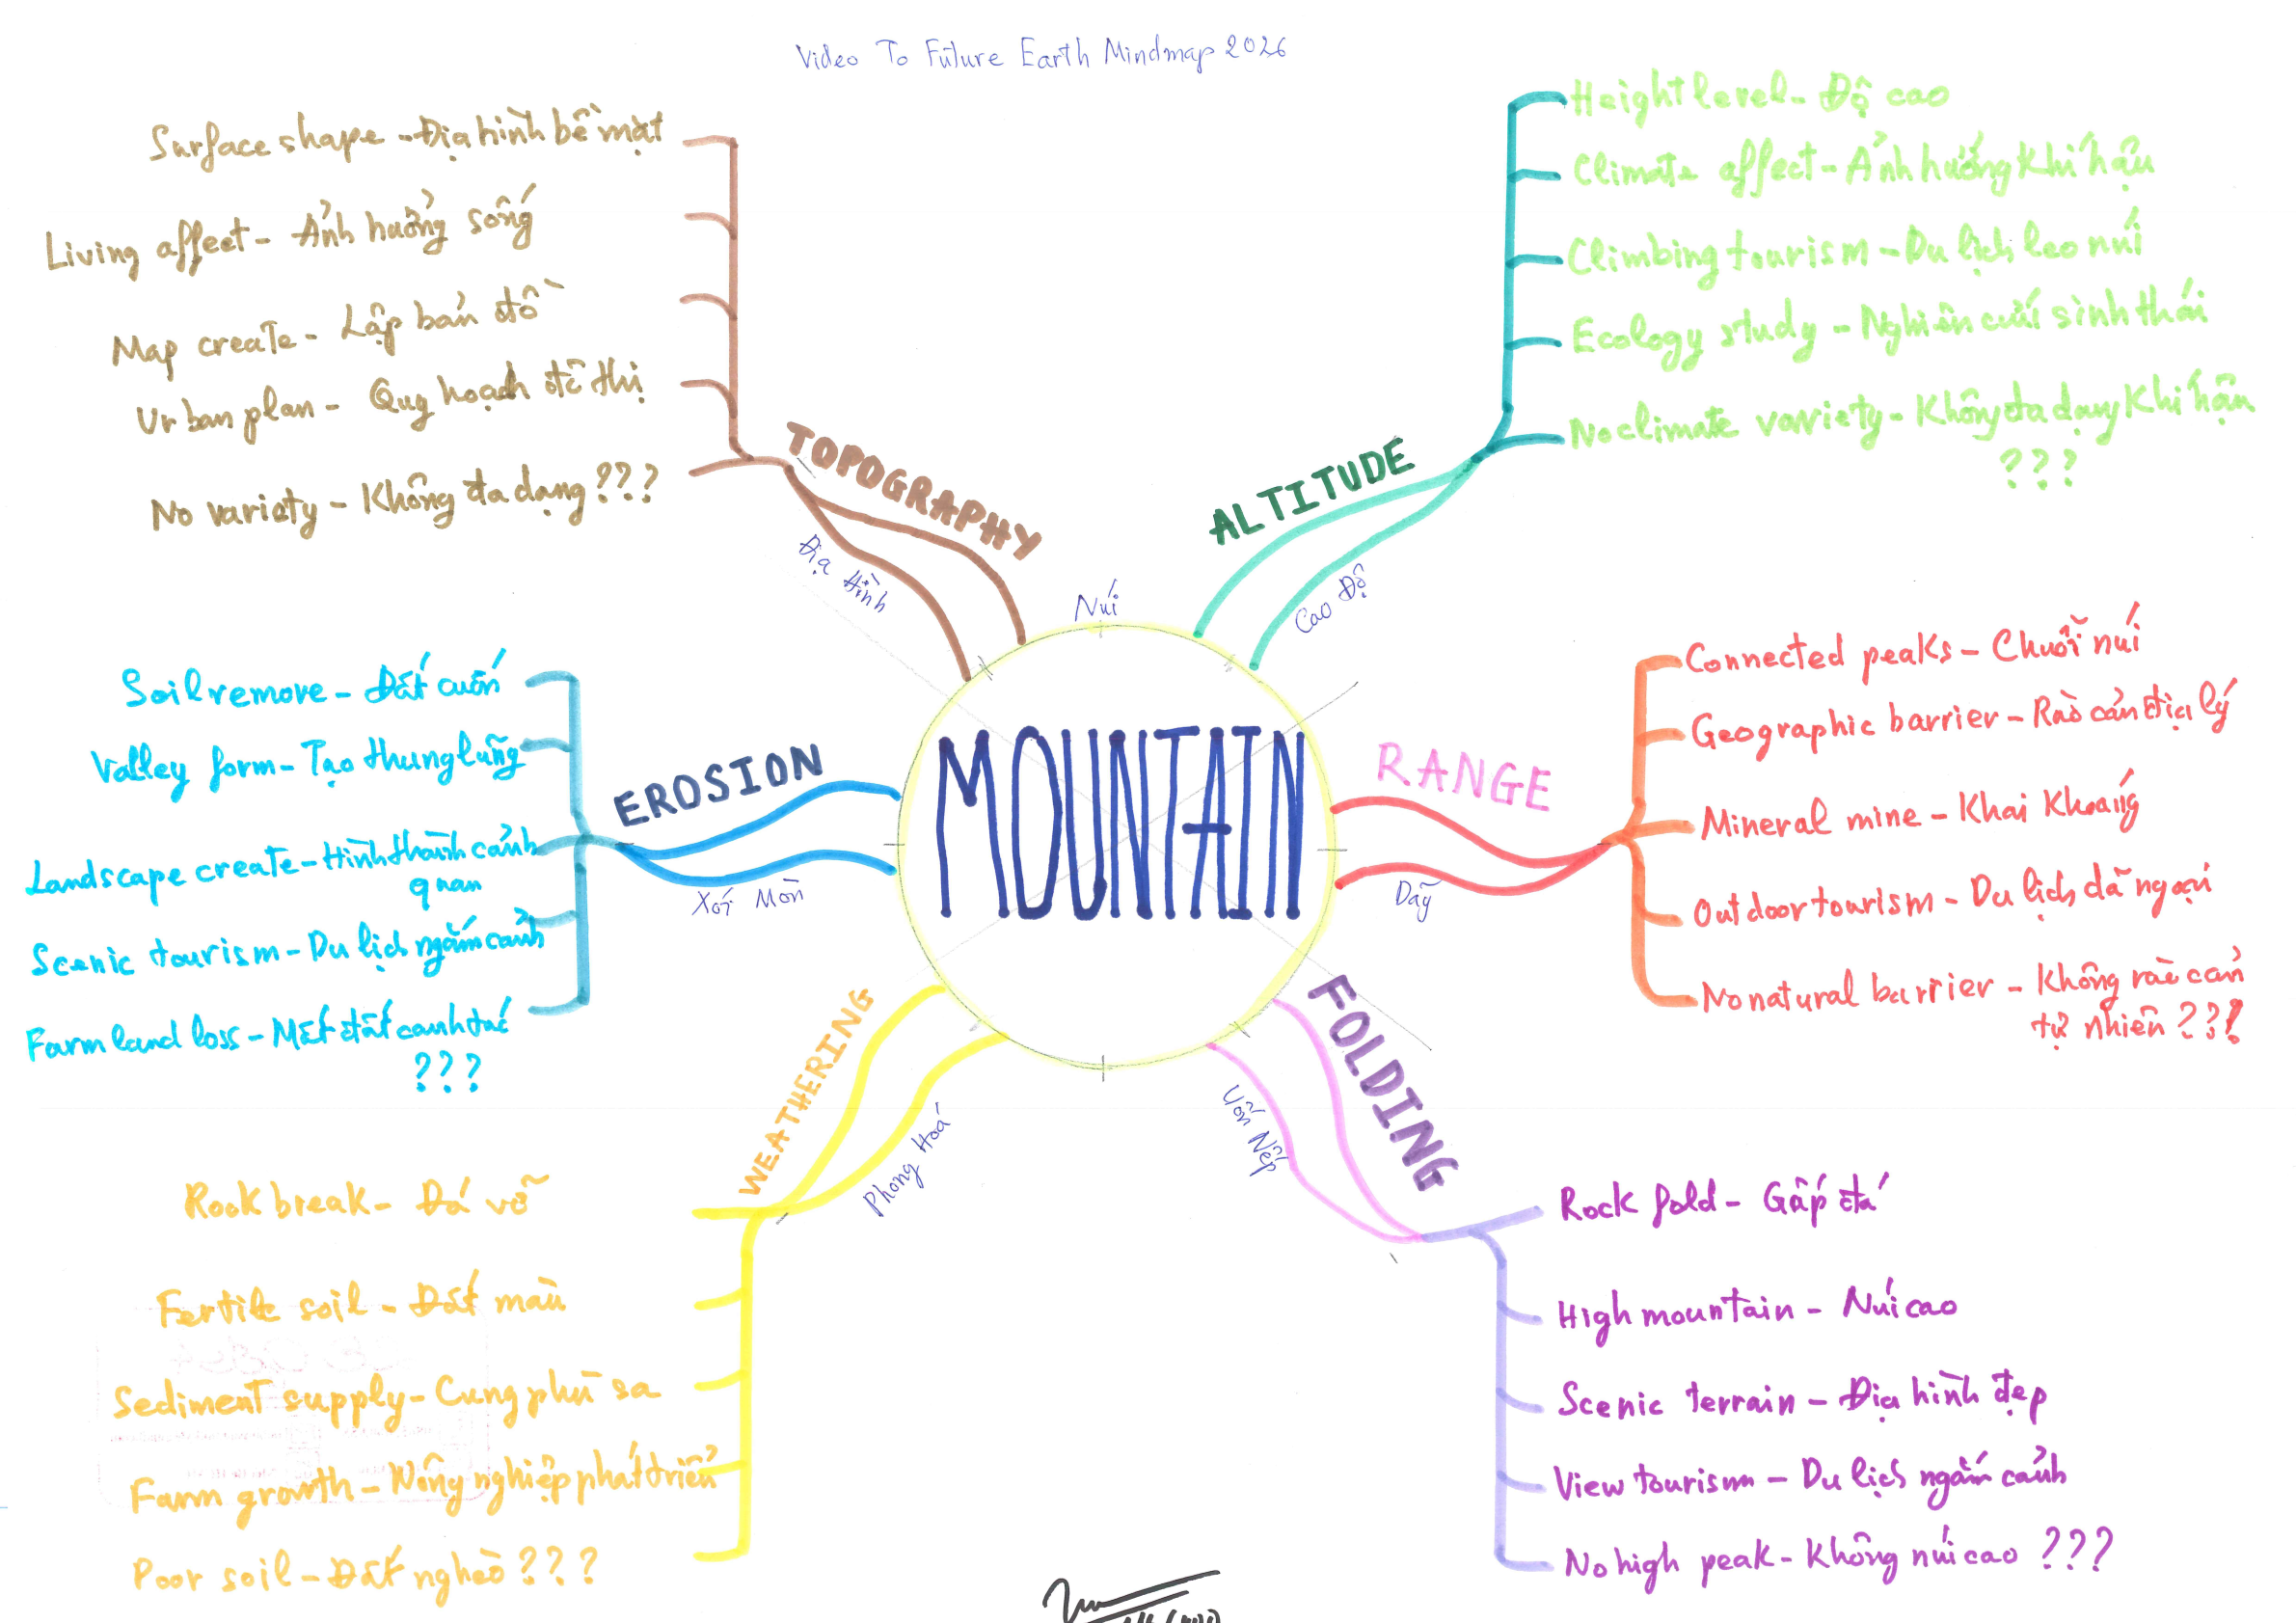 Video To Future Earth Mindmap 2026
MOUNTAIN
Núi
ALTITUDE
Cao Độ
Height level - Độ cao
Climate affect - Ảnh hưởng Khí hậu
Climbing tourism - Du lịch leo núi
Ecology study - Nghiên cứu sinh thái
No climate variety - Không đa dạng Khí hậu
???
RANGE
Dãy
Connected peaks - Chuỗi núi
Geographic barrier - Rào cản địa lý
Mineral mine - Khai Khoáng
Outdoor tourism - Du lịch dã ngoại
No natural barrier - Không rào cản
tự nhiên ???
FOLDING
Uốn Nếp
Rock fold - Gấp đá
High mountain - Núi cao
Scenic terrain - Địa hình đẹp
View tourism - Du lịch ngắm cảnh
No high peak - Không núi cao ???
WEATHERING
Phong Hoá
Rock break - Đá vỡ
Fertile soil - Đất màu
Sediment supply - Cung phù sa
Farm growth - Nông nghiệp phát triển
Poor soil - Đất nghèo ???
EROSION
Xói Mòn
Soil remove - Đất cuốn
Valley form - Tạo thung lũng
Landscape create - Hình thành cảnh
quan
Scenic tourism - Du lịch ngắm cảnh
Farm land loss - Mất đất canh tác
???
TOPOGRAPHY
Địa Hình
Surface shape - Địa hình bề mặt
Living affect - Ảnh hưởng sống
Map create - Lập bản đồ
Urban plan - Quy hoạch đô thị
No variety - Không đa dạng ???